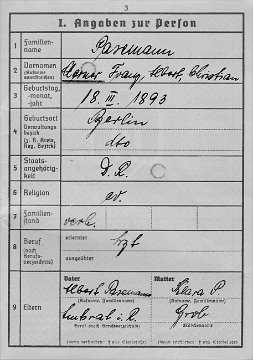 3
I. Angaben zur Person
1 Familien-
name
Pasemann
2 Vornamen
(Rufname
unterstreichen)
Werner Franz, Albert, Christian
3 Geburtstag,
-monat,
-jahr
18. III. 1893
4 Geburtsort
Verwaltungs-
bezirk
(z. B. Kreis,
Reg. Bezirk)
Berlin
dto
5 Staats-
angehörig-
keit
D. R.
6 Religion
ev.
7 Familien-
stand
verh.
8 Beruf
(nach
Berufs-
verzeichnis)
erlernter
Arzt
ausgeübter
9 Eltern
Vater
Mutter
Albert Pasemann
Klara P
(Rufname, Familienname)
(Rufname, Familienname)
i. R.
Grob
Beruf (nach Berufsverzeichnis)
Mädchenname